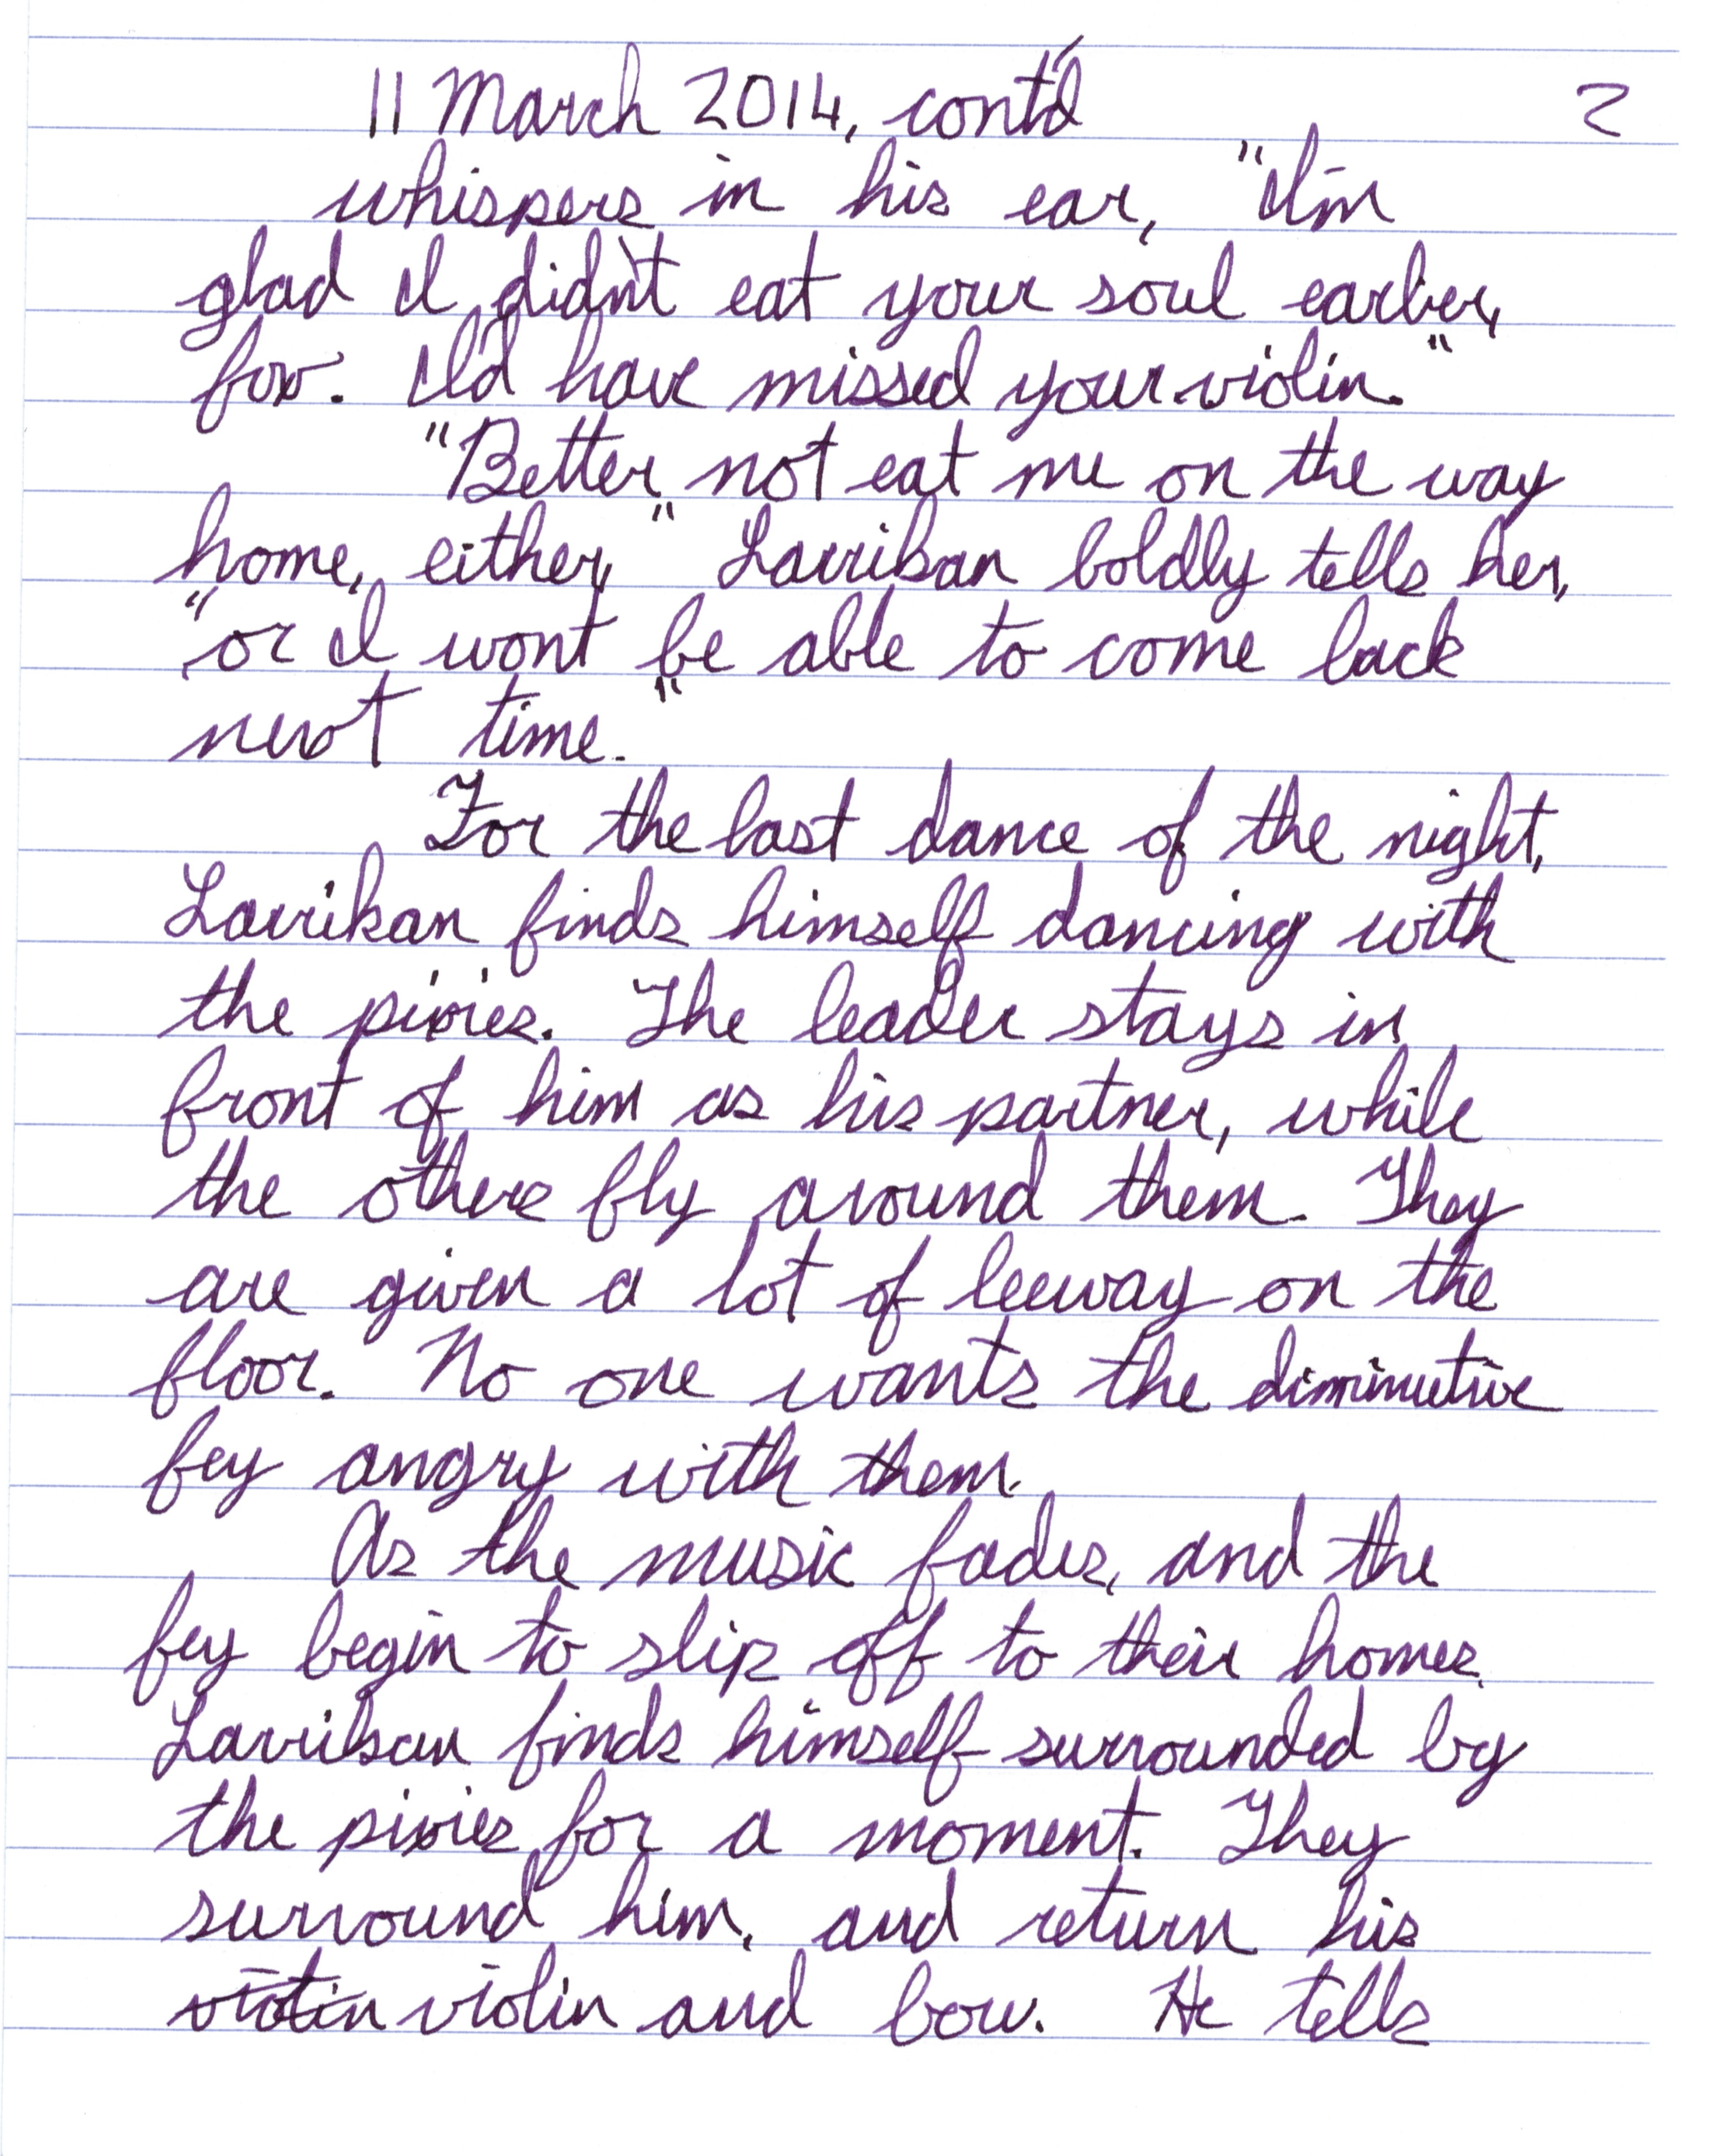 11 March 2014, cont'd 2
whispers in his ear, "I'm
glad I didn't eat your soul earlier,
fox. I'd have missed your violin."
"Better not eat me on the way
home, either," Larrikan boldly tells her,
"or I won't be able to come back
next time."
For the last dance of the night,
Larrikan finds himself dancing with
the pixies. The leader stays in
front of him as his partner, while
the others fly around them. They
are given a lot of leeway on the
floor. No one wants the diminutive
fey angry with them.
As the music fades, and the
fey begin to slip off to their homes,
Larrikan finds himself surrounded by
the pixies for a moment. They
surround him, and return his
violin violin and bow. He tells